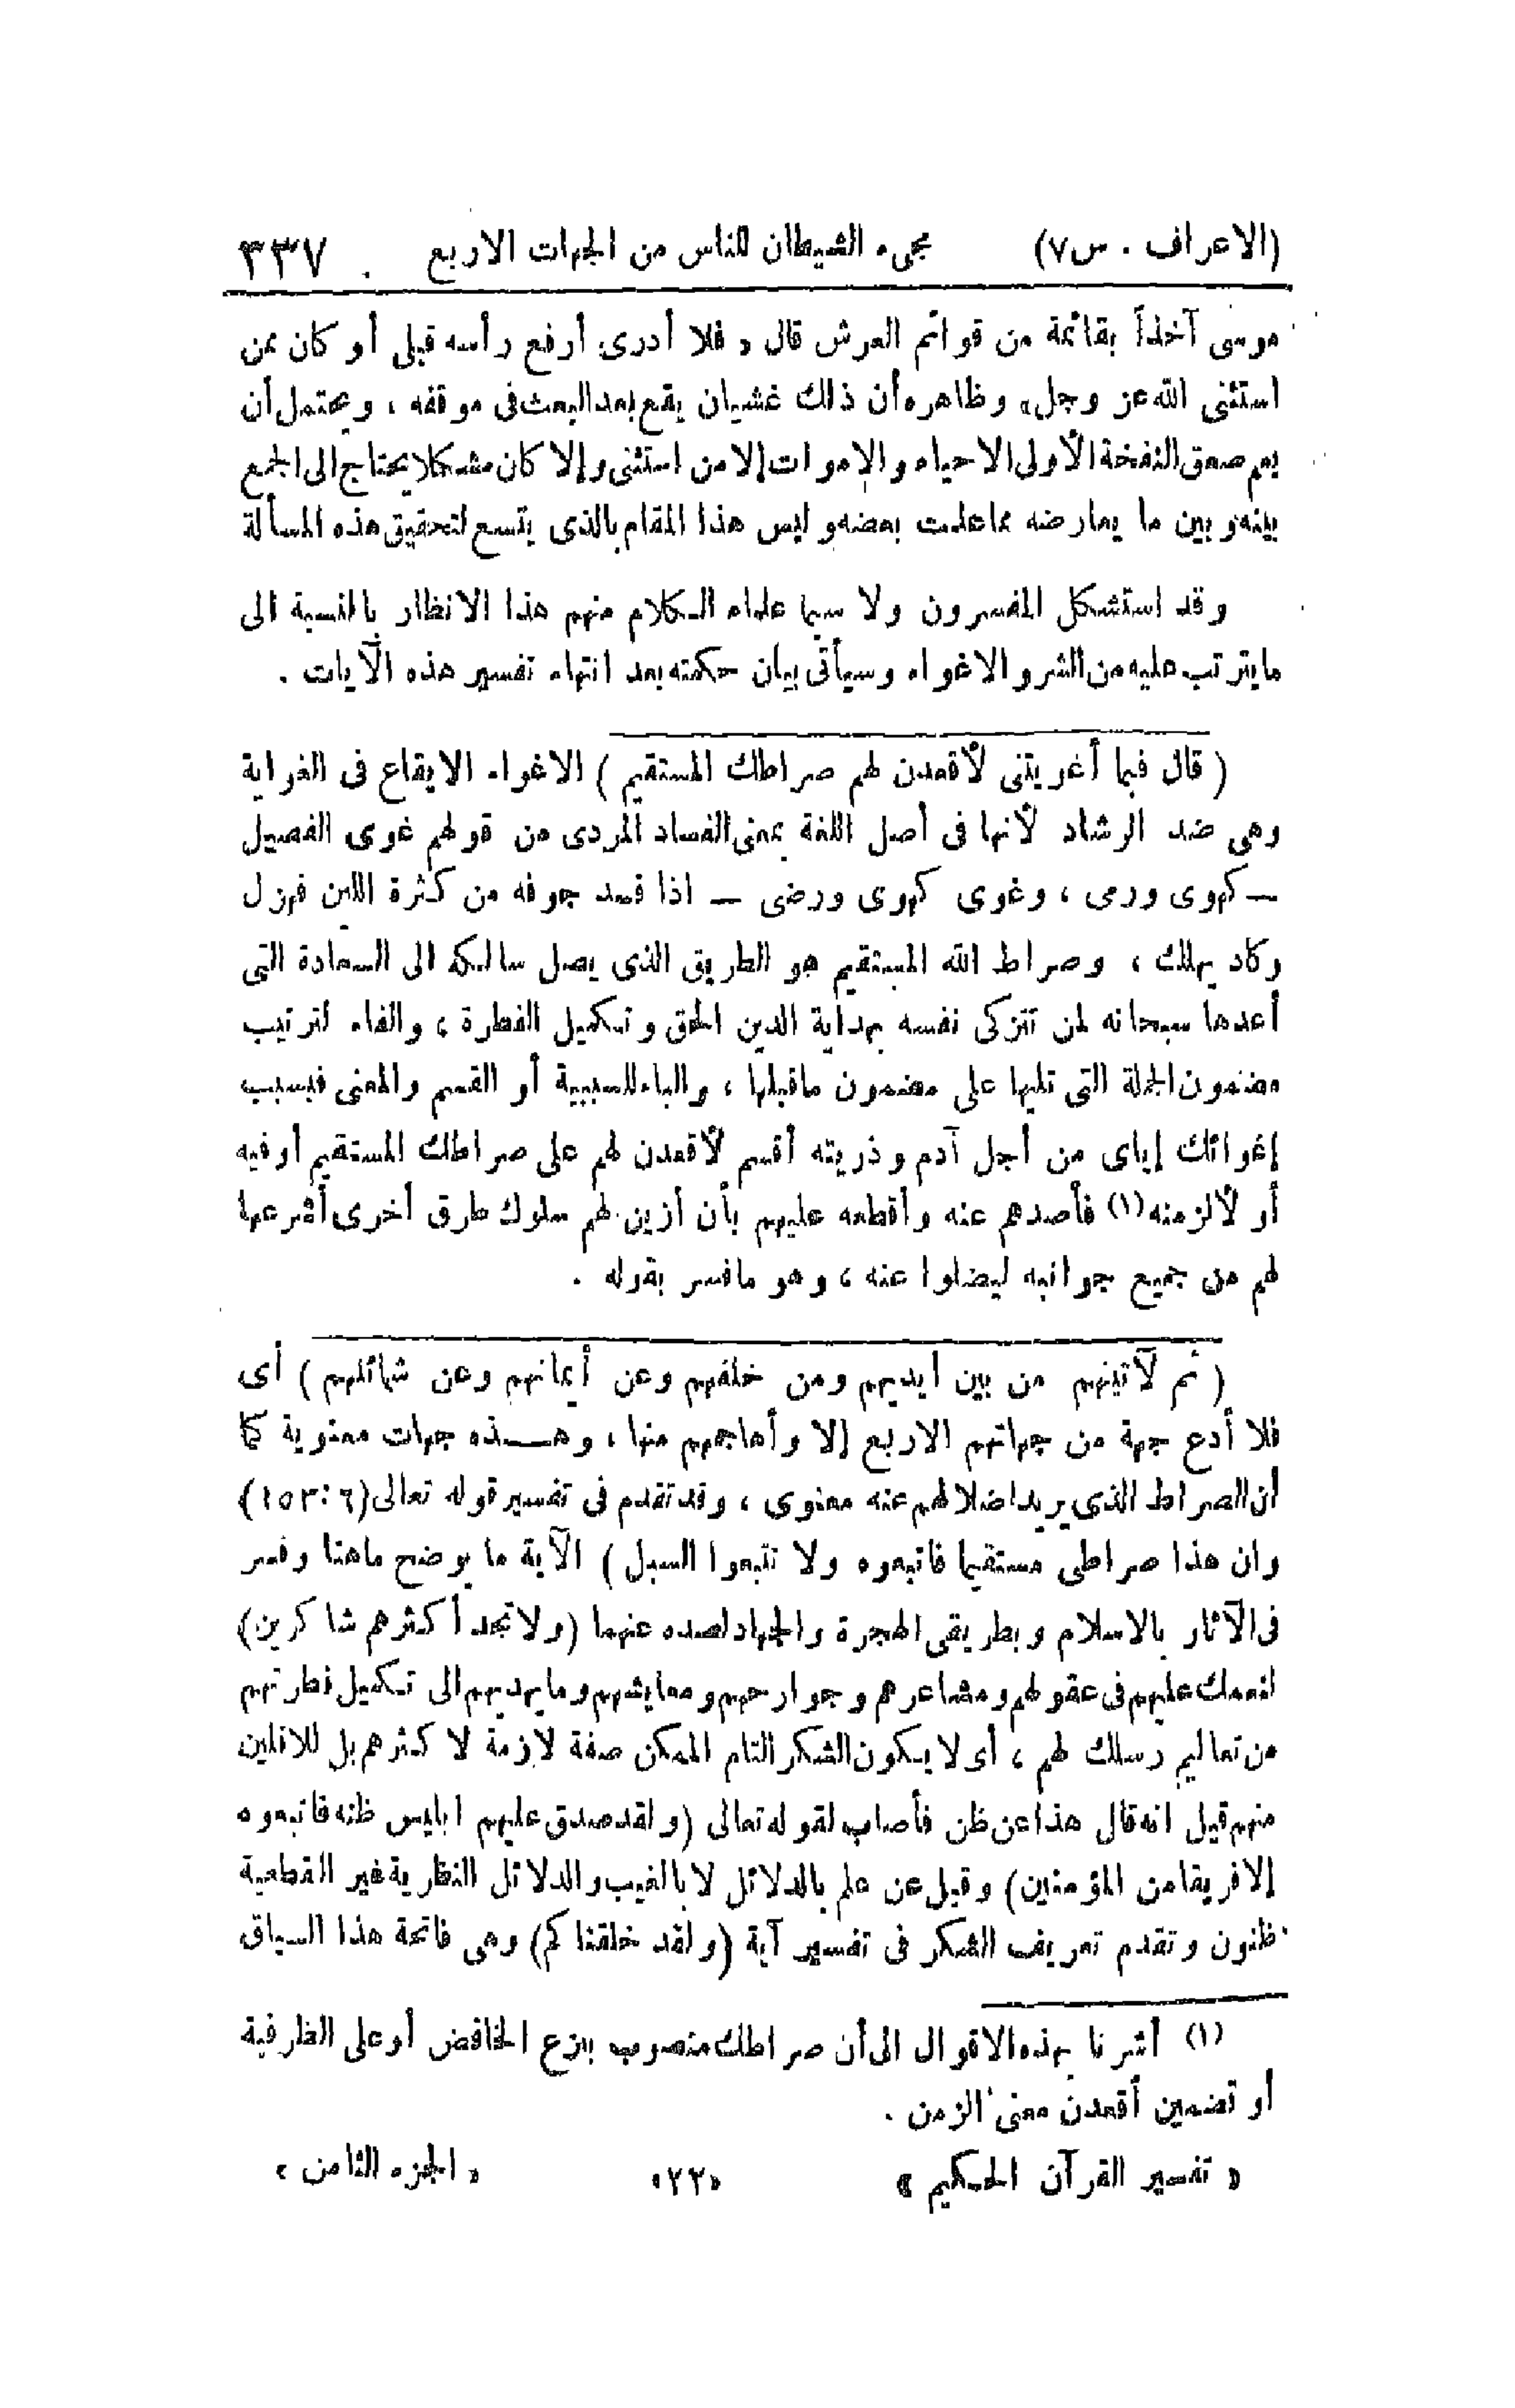 (الاعراف . س٧) مجىء الشيطان للناس من الجهات الاربع ٣٣٧
موسى آخذاً بقائمة من قوائم العرش قال « فلا أدرى أرفع رأسه قبلى أو كان ممن
استثنى الله عز وجل» وظاهره أن ذلك غشيان يقع بعد البعث فى موقفه ، ويحتمل أن
يعم صعق النفخة الأولى الاحياء والاموات إلا من استثنى وإلا كان مشكلا يحتاج الى الجمع
بينه وبين ما يعارضه مما علمت بعضه وليس هذا المقام بالذى يتسع لتحقيق هذه المسألة
وقد استشكل المفسرون ولا سيما علماء الكلام منهم هذا الانظار بالنسبة الى
ما يترتب عليه من الشر والاغواء وسيأتى بيان حكمته بعد انتهاء تفسير هذه الآيات .
( قال فبما أغويتنى لأقعدن لهم صراطك المستقيم ) الاغواء الايقاع فى الغواية
وهى ضد الرشاد لأنها فى أصل اللغة بمعنى الفساد المردى من قولهم غوى الفصيل
— كهوى ورمى ، وغوى كهوى ورضى — اذا فسد جوفه من كثرة اللبن فهزل
وكاد يهلك ، وصراط الله المستقيم هو الطريق الذى يصل سالكه الى السعادة التى
أعدها سبحانه لمن تتزكى نفسه بهداية الدين الحق وتكميل الفطرة ، والفاء لترتيب
مضمون الجملة التى تليها على مضمون ماقبلها ، والباء للسببية أو القسم والمعنى فبسبب
إغوائك إياى من أجل آدم وذريته أقسم لأقعدن لهم على صراطك المستقيم أو فيه
أو لألزمنه (١) فأصدهم عنه وأقطعه عليهم بأن أزين لهم سلوك طرق أخرى أشرعها
لهم من جميع جوانبه ليضلوا عنه ، وهو مافسر بقوله .
( ثم لآتينهم من بين أيديهم ومن خلفهم وعن أيمانهم وعن شمائلهم ) أى
فلا أدع جهة من جهاتهم الاربع إلا وأهاجمهم منها ، وهـــذه جهات معنوية كما
أن الصراط الذى يريد اضلالهم عنه معنوى ، وقد تقدم فى تفسير قوله تعالى (٦ : ١٥٣)
وان هذا صراطى مستقيما فاتبعوه ولا تتبعوا السبل ) الآية ما يوضح ماهنا وفسر
فى الآثار بالاسلام وبطريقى الهجرة والجهاد لصده عنهما (ولا تجد أكثرهم شاكرين)
لنعمك عليهم فى عقولهم ومشاعرهم وجوارحهم ومعايشهم وما يهديهم الى تكميل فطرتهم
من تعاليم رسلك لهم ، أى لا يكون الشكر التام الممكن صفة لازمة لا كثرهم بل للاقلين
منهم قيل انه قال هذا عن ظن فأصاب لقوله تعالى (ولقد صدق عليهم ابليس ظنه فاتبعوه
إلا فريقا من المؤمنين) وقيل عن علم بالدلائل لا بالغيب والدلائل النظرية غير القطعية
ظنون وتقدم تعريف الشكر فى تفسير آية (ولقد خلقناكم) وهى فاتحة هذا السياق
(١) أشرنا بهذه الاقوال الى أن صراطك منصوب بنزع الخافض أو على الظرفية
أو تضمين أقعدن معنى الزمن .
« تفسير القرآن الحكيم » «٢٢» « الجزء الثامن »